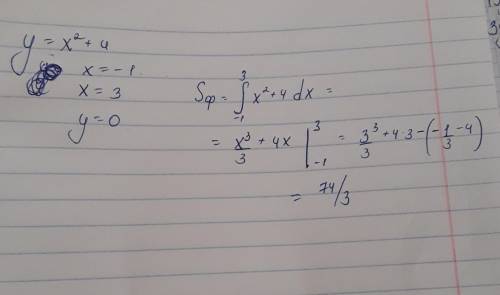 y = x² + 4
x = -1
x = 3
y = 0
Sф = ∫₋₁³ x² + 4 dx =
= x³/3 + 4x |₋₁³ = 3³/3 + 4·3 - (-1/3 - 4)
= 74/3